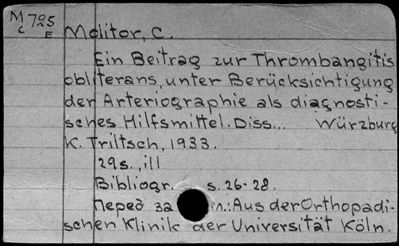 M 725
c E
Molitor, C.
Ein Beitrag zur Thrombangitis
obliterans, unter Berücksichtigung
der Arteriographie als diagnosti-
sches Hilfsmittel. Diss... Würzburg
K. Triltsch, 1933.
29s., ill
Bibliogr. s. 26-28.
Перед за л.: Aus der Orthopädi-
schen Klinik der Universität Köln.